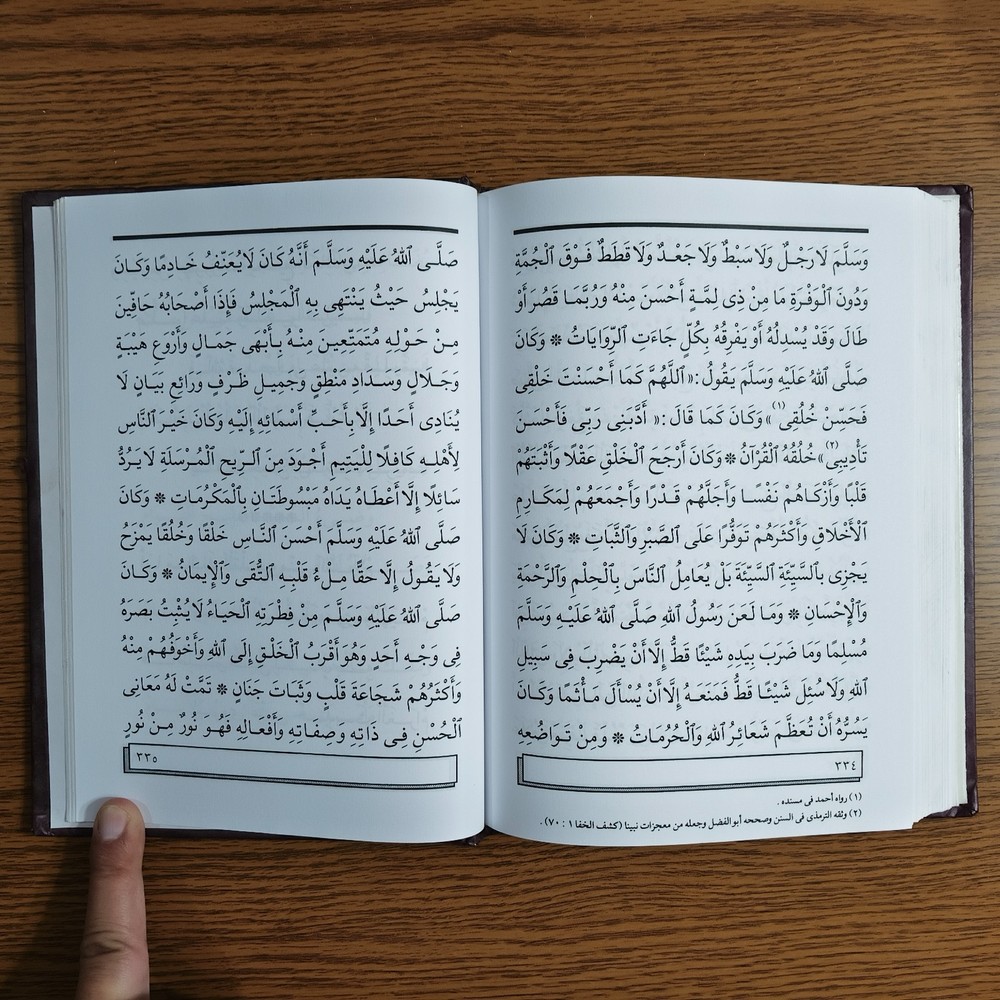 وَسَلَّمَ لَا رَجْلٌ وَلَا سَبْطٌ وَلَا جَعْدٌ وَلَا قَطَطٌ فَوْقَ ٱلْجُمَّةِ
وَدُونَ ٱلْوَفْرَةِ مَا مِنْ ذِى لِمَّةٍ أَحْسَنَ مِنْهُ وَرُبَّمَا قَصُرَ أَوْ
طَالَ وَقَدْ يُسْدِلُهُ أَوْ يَفْرِقُهُ بِكُلٍّ جَاءَتِ ٱلرِّوَايَاتُ * وَكَانَ
صَلَّى ٱللهُ عَلَيْهِ وَسَلَّمَ يَقُولُ :« ٱللَّهُمَّ كَمَا أَحْسَنْتَ خَلْقِى
فَحَسِّنْ خُلُقِى(١) » وَكَانَ كَمَا قَالَ :« أَدَّبَنِى رَبِّى فَأَحْسَنَ
تَأْدِيبِى(٢)» خُلُقُهُ ٱلْقُرْآنُ * وَكَانَ أَرْجَحَ ٱلْخَلْقِ عَقْلًا وَأَثْبَتَهُمْ
قَلْبًا وَأَزْكَاهُمْ نَفْسًا وَأَجَلَّهُمْ قَدْرًا وَأَجْمَعَهُمْ لِمَكَارِمِ
ٱلْأَخْلَاقِ وَأَكْثَرَهُمْ تَوَفُّرًا عَلَى ٱلصَّبْرِ وَٱلثَّبَاتِ * وَكَانَ لَا
يَجْزِى بِٱلسَّيِّئَةِ ٱلسَّيِّئَةَ بَلْ يُعَامِلُ ٱلنَّاسَ بِٱلْحِلْمِ وَٱلرَّحْمَةِ
وَٱلْإِحْسَانِ * وَمَا لَعَنَ رَسُولُ ٱللهِ صَلَّى ٱللهُ عَلَيْهِ وَسَلَّمَ
مُسْلِمًا وَمَا ضَرَبَ بِيَدِهِ شَيْئًا قَطُّ إِلَّا أَنْ يَضْرِبَ فِى سَبِيلِ
ٱللهِ وَلَا سُئِلَ شَيْئًا قَطُّ فَمَنَعَهُ إِلَّا أَنْ يُسْأَلَ مَأْثَمًا وَكَانَ
يَسُرُّهُ أَنْ تُعَظَّمَ شَعَائِرُ ٱللهِ وَٱلْحُرُمَاتُ * وَمِنْ تَوَاضُعِهِ
٣٣٤
(١) رواه أحمد فى مسنده .
(٢) وثقه الترمذى فى السنن وصححه أبو الفضل وجعله من معجزات نبينا (كشف الخفا ١ : ٧٠) .
صَلَّى ٱللهُ عَلَيْهِ وَسَلَّمَ أَنَّهُ كَانَ لَا يُعَنِّفُ خَادِمًا وَكَانَ
يَجْلِسُ حَيْثُ يَنْتَهِى بِهِ ٱلْمَجْلِسُ فَإِذَا أَصْحَابُهُ حَافِّينَ
مِنْ حَوْلِهِ مُتَمَتِّعِينَ مِنْهُ بِأَبْهَى جَمَالٍ وَأَرْوَعِ هَيْبَةٍ
وَجَلَالٍ وَسَدَادِ مَنْطِقٍ وَجَمِيلِ ظَرْفٍ وَرَائِعِ بَيَانٍ لَا
يُنَادِى أَحَدًا إِلَّا بِأَحَبِّ أَسْمَائِهِ إِلَيْهِ وَكَانَ خَيْرَ ٱلنَّاسِ
لِأَهْلِهِ كَافِلًا لِلْيَتِيمِ أَجْوَدَ مِنَ ٱلرِّيحِ ٱلْمُرْسَلَةِ لَا يَرُدُّ
سَائِلًا إِلَّا أَعْطَاهُ يَدَاهُ مَبْسُوطَتَانِ بِٱلْمَكْرُمَاتِ * وَكَانَ
صَلَّى ٱللهُ عَلَيْهِ وَسَلَّمَ أَحْسَنَ ٱلنَّاسِ خَلْقًا وَخُلُقًا يَمْزَحُ
وَلَا يَقُولُ إِلَّا حَقًّا مِلْءُ قَلْبِهِ ٱلتُّقَى وَٱلْإِيمَانُ * وَكَانَ
صَلَّى ٱللهُ عَلَيْهِ وَسَلَّمَ مِنْ فِطْرَتِهِ ٱلْحَيَاءُ لَا يُثْبِتُ بَصَرَهُ
فِى وَجْهِ أَحَدٍ وَهُوَ أَقْرَبُ ٱلْخَلْقِ إِلَى ٱللهِ وَأَخْوَفُهُمْ مِنْهُ
وَأَكْثَرُهُمْ شَجَاعَةَ قَلْبٍ وَثَبَاتَ جَنَانٍ * تَمَّتْ لَهُ مَعَانِى
ٱلْحُسْنِ فِى ذَاتِهِ وَصِفَاتِهِ وَأَفْعَالِهِ فَهُوَ نُورٌ مِنْ نُورِ
٣٣٥